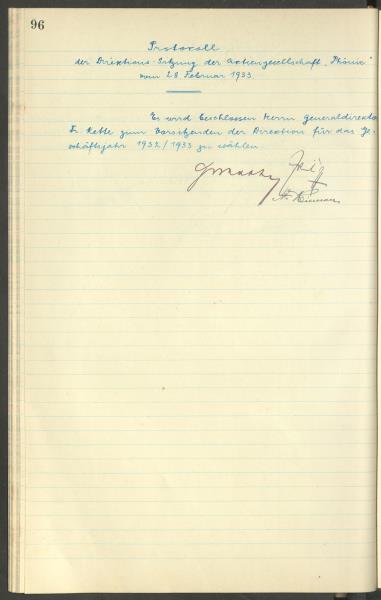 96
Protokoll
der Direktions-Sitzung der Aktiengesellschaft „Phönix“
vom 28 Februar 1933.
Es wird beschlossen Herrn Generaldirektor
zum Vorsitzenden der Direktion für das Ge-
schäftsjahr 1932/1933 zu wählen.